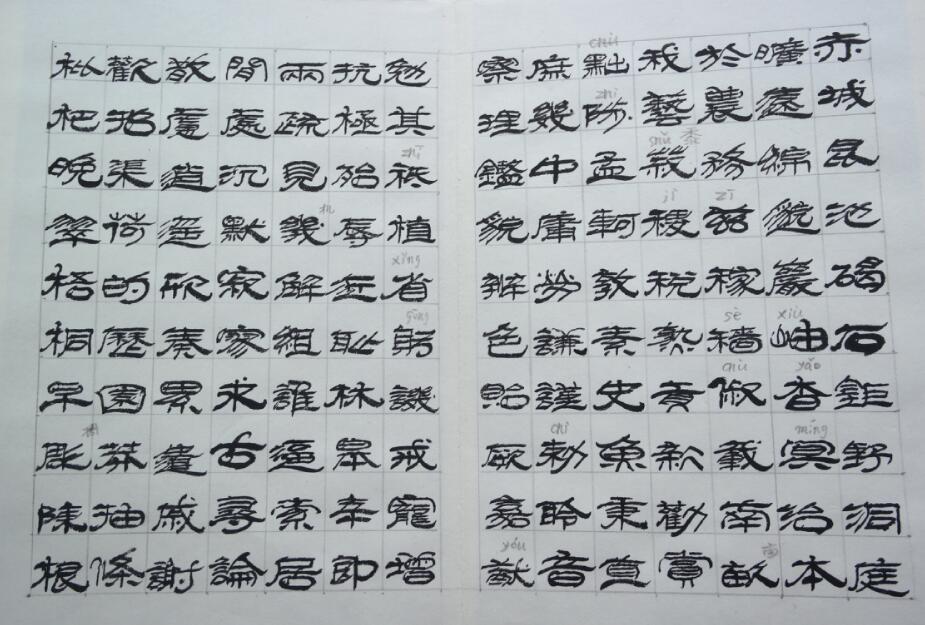 赤城昆池碣石鉅野洞庭
曠遠綿邈巖岫杳冥治本
於農務茲稼穡俶載南畝
我藝黍稷稅熟貢新勸賞
黜陟孟軻敦素史魚秉直
庶幾中庸勞謙謹敕聆音
察理鑑貌辨色貽厥嘉猷
勉其祗植省躬譏戒寵增
抗極殆辱近恥林皋幸即
兩疏見幾解組誰逼索居
閒處沉默寂寥求古尋論
散慮逍遙欣奏累遣慼謝
歡招渠荷的歷園莽抽條
枇杷晚翠梧桐早彫陳根
xiù
yǎo
míng
zī
sè
chù
shǔ 黍
jì
chù
zhì
chì
yóu
zhī
xǐng
gōng
机